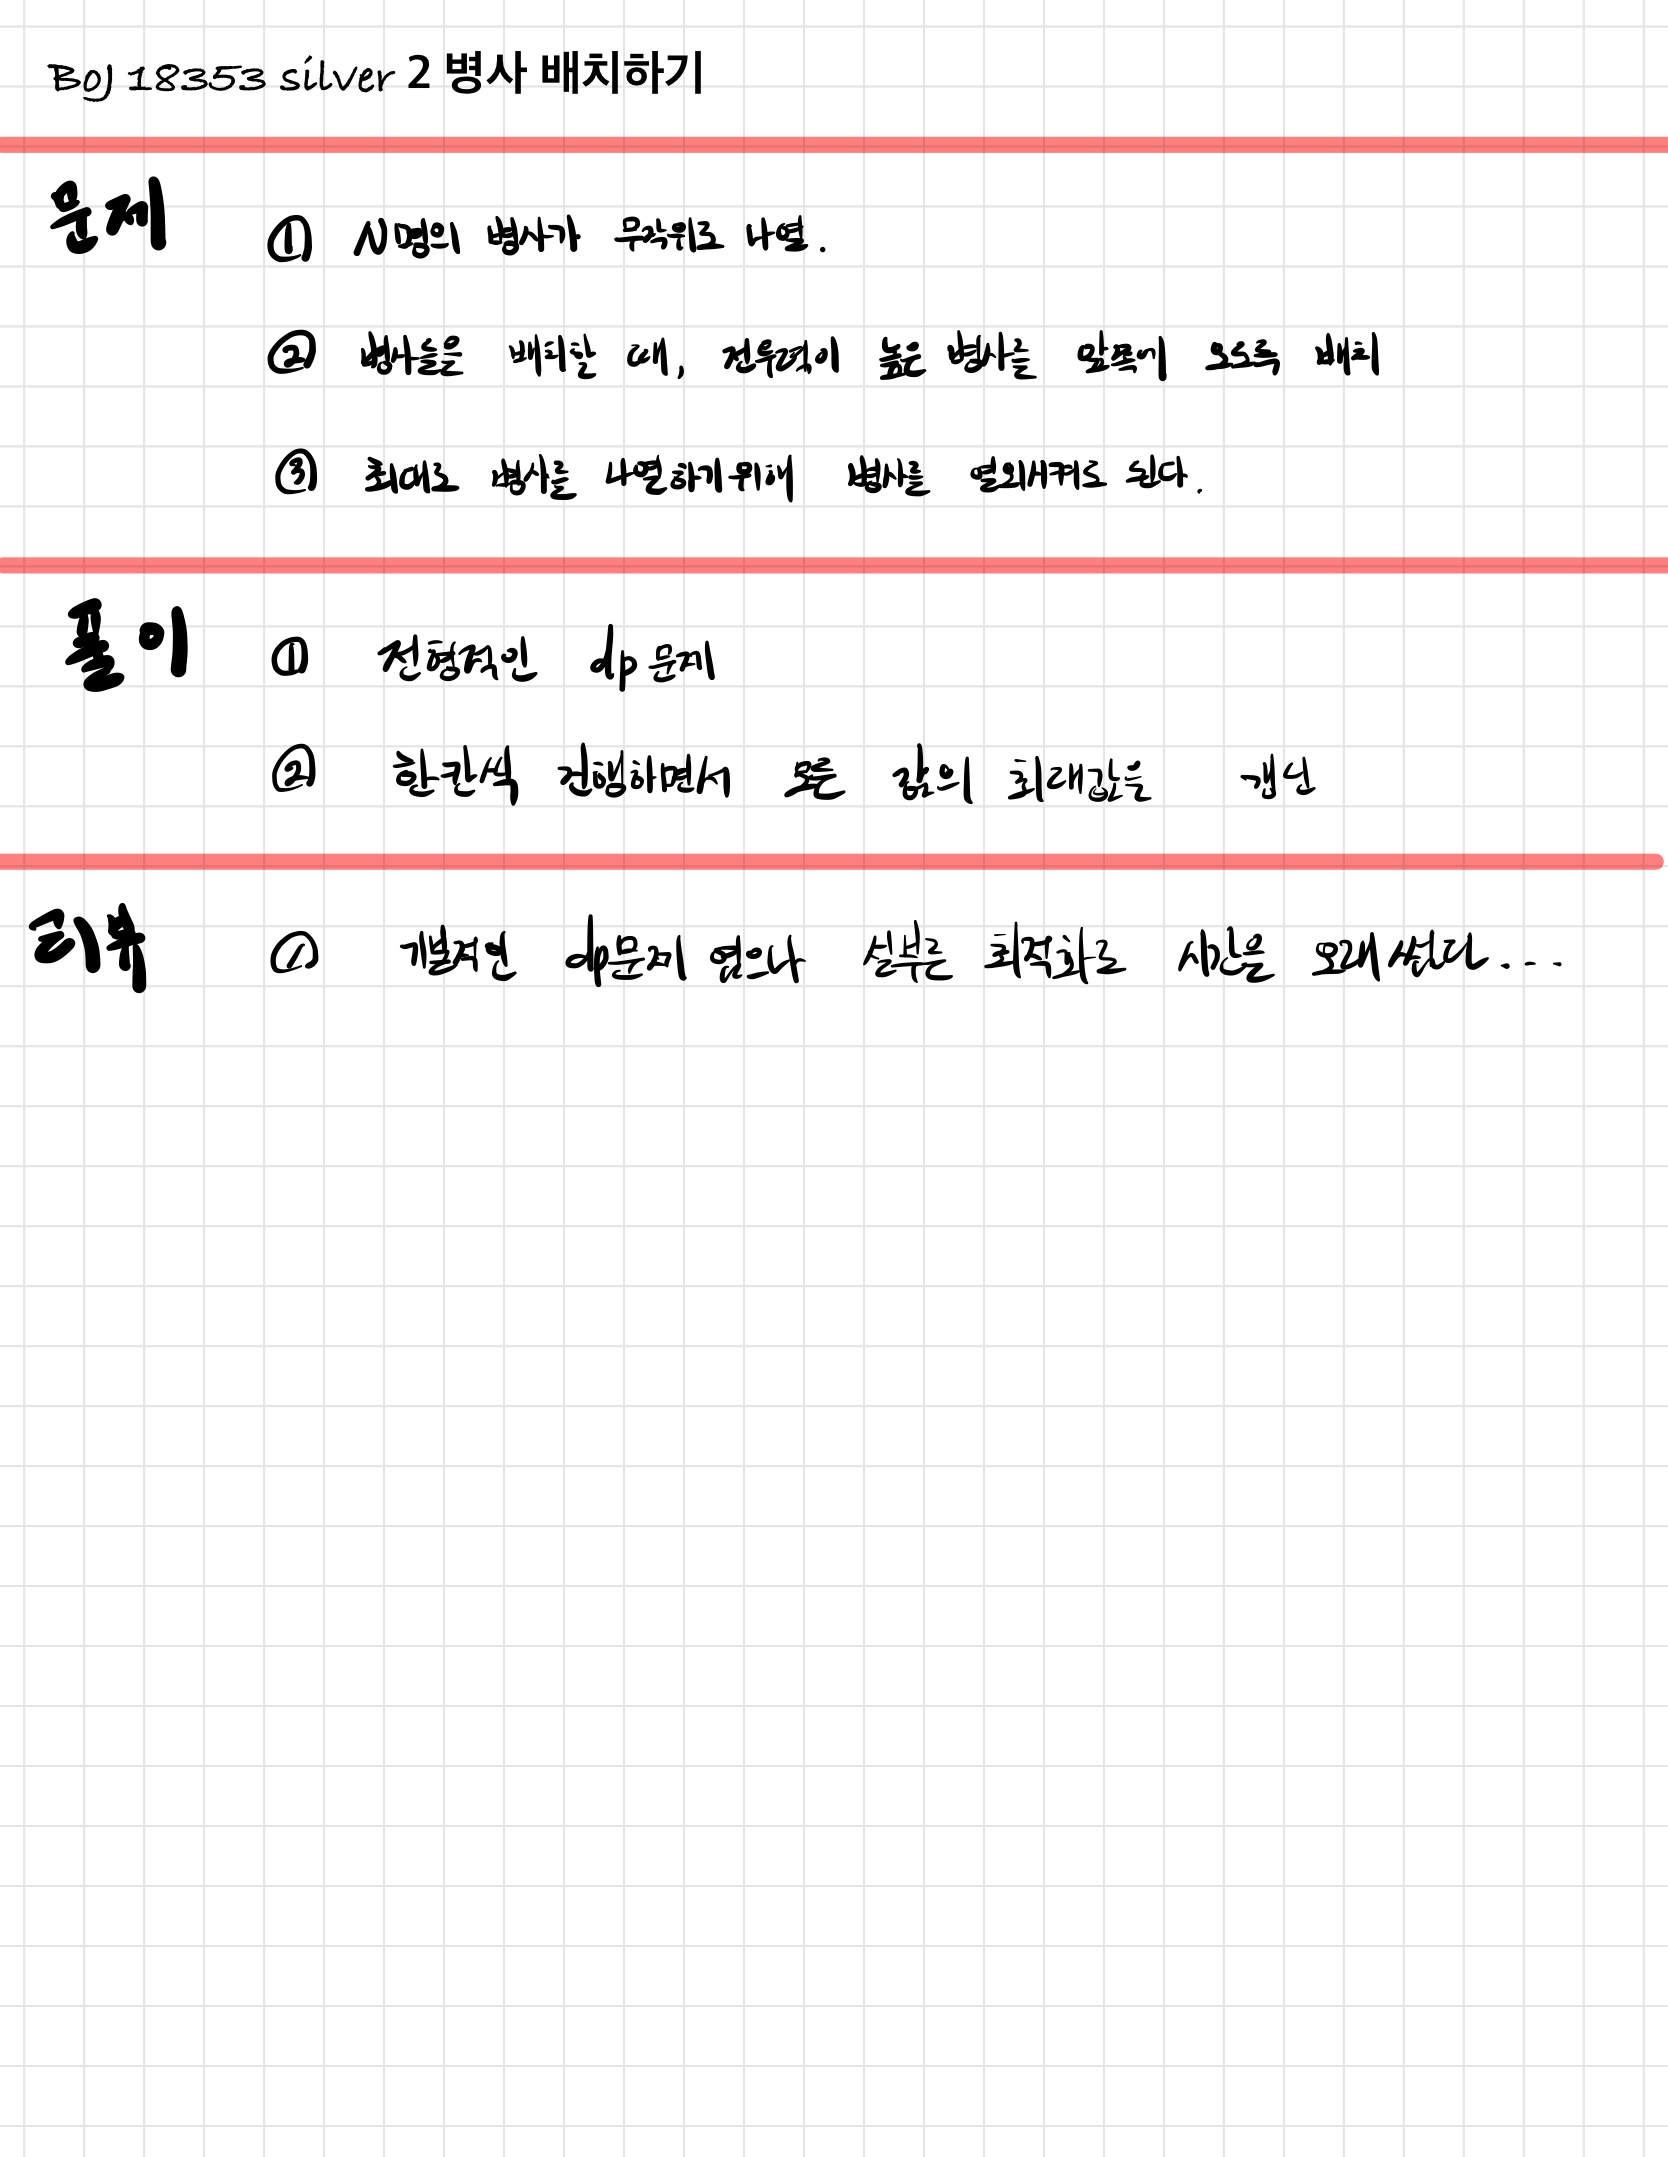 BOJ 18353 silver 2 병사 배치하기
문제 ① N명의 병사가 무작위로 나열.
② 병사들을 배치할 때, 전투력이 높은 병사를 앞쪽에 오도록 배치
③ 최대로 병사를 나열하기위해 병사를 열외시켜도 된다.
풀이 ① 전형적인 dp문제
② 한칸씩 진행하면서 모든 값의 최대값을 갱신
리뷰 ① 기본적인 dp문제 였으나 섣부른 최적화로 시간을 오래썼다...